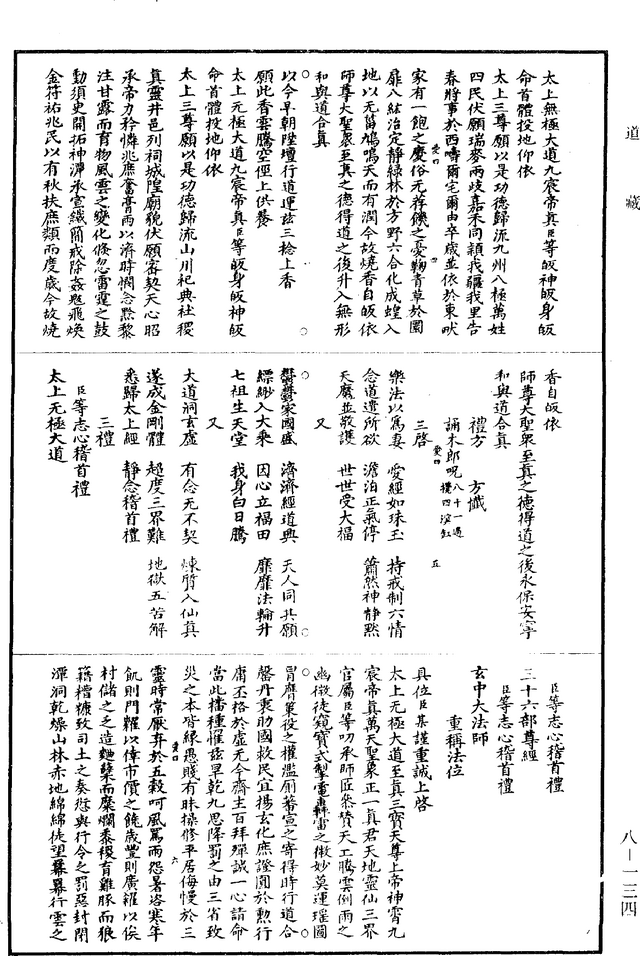 道藏
太上無極大道九宸帝真臣等皈神皈身皈
命首體投地仰依
太上三尊願以是功德歸流九州八極萬姓
四民伏願瑞麥兩歧嘉禾同穎我疆我里告
春將事於西疇爾宅爾田卒歲並依於東畎
家有一飽之慶俗无荐饑之憂鞠青草於圄
扉八紘治定靜綠林於方野六合化成蝗入
地以无菑鳩鳴天而有潤今故燒香自皈依
師尊大聖衆至真之德得道之後升入無形
和與道合真
以今早朝陞壇行道運茲三捻上香
願此香雲騰空徑上供養
太上无極大道九宸帝真臣等皈身皈神皈
命首體投地仰依
太上三尊願以是功德歸流山川祀典社稷
真靈井邑列祠城隍廟貌伏願審契天心昭
承帝力矜憐兆庶奮膏雨以濟時憫念黔黎
注甘露而育物風雲之變化倏忽雷霆之鼓
動須臾開拓神潭承宣鐵簡戒除姦魃飛煥
金符祐兆民以有秋扶庶類而度歲今故燒
香自皈依
師尊大聖衆至真之德得道之後永保安寧
和與道合真
禮方　方懺
誦木郎呪八十一遍
三啓
樂法以爲妻　愛經如珠玉　持戒制六情
念道遣所欲　澹泊正氣停　蕭然神靜默
天魔並敬護　世世受大福
又
鬱鬱家國盛　濟濟經道興　天人同其願
縹緲入大乘　因心立福田　靡靡法輪升
七祖生天堂　我身白日騰
又
大道洞玄虛　有念无不契　煉質入仙真
遂成金剛體　超度三界難　地獄五苦解
悉歸太上經　靜念稽首禮
三禮
臣等志心稽首禮
太上无極大道
臣等志心稽首禮
三十六部尊經
臣等志心稽首禮
玄中大法師
重稱法位
具位臣某謹重誠上啓
太上无極大道至真三寶天尊上帝神霄九
宸帝真萬天聖衆正一真君天地靈仙三界
官屬臣等叨承師匠忝贊天工騰雲倒雨之
幽微徒窺寶式掣電轟雷之微妙莫運瑤圖
冒膺策役之權濫廁蕃宣之寄得時行道合
罄丹衷助國救民宜揚玄化庶證圓於勳行
庸丕格於虛无今齋主百拜殫誠一心請命
當此播種惟茲旱乾九思降罰之由三省致
災之本皆緣愚賤有昧操修平居侮慢於三
靈時常厭弃於五穀呵風罵雨怨暑咨寒年
飢則門羅以倖市價之饒歲豐則廣糴以俟
村儲之乏造麵糵而糜爛黍稷育雞豚而狼
籍糟糠致司土之奏愆與行令之罰惡封閉
潭洞乾燥山林赤地綿綿徒望霢霂行雲之
八—一三四